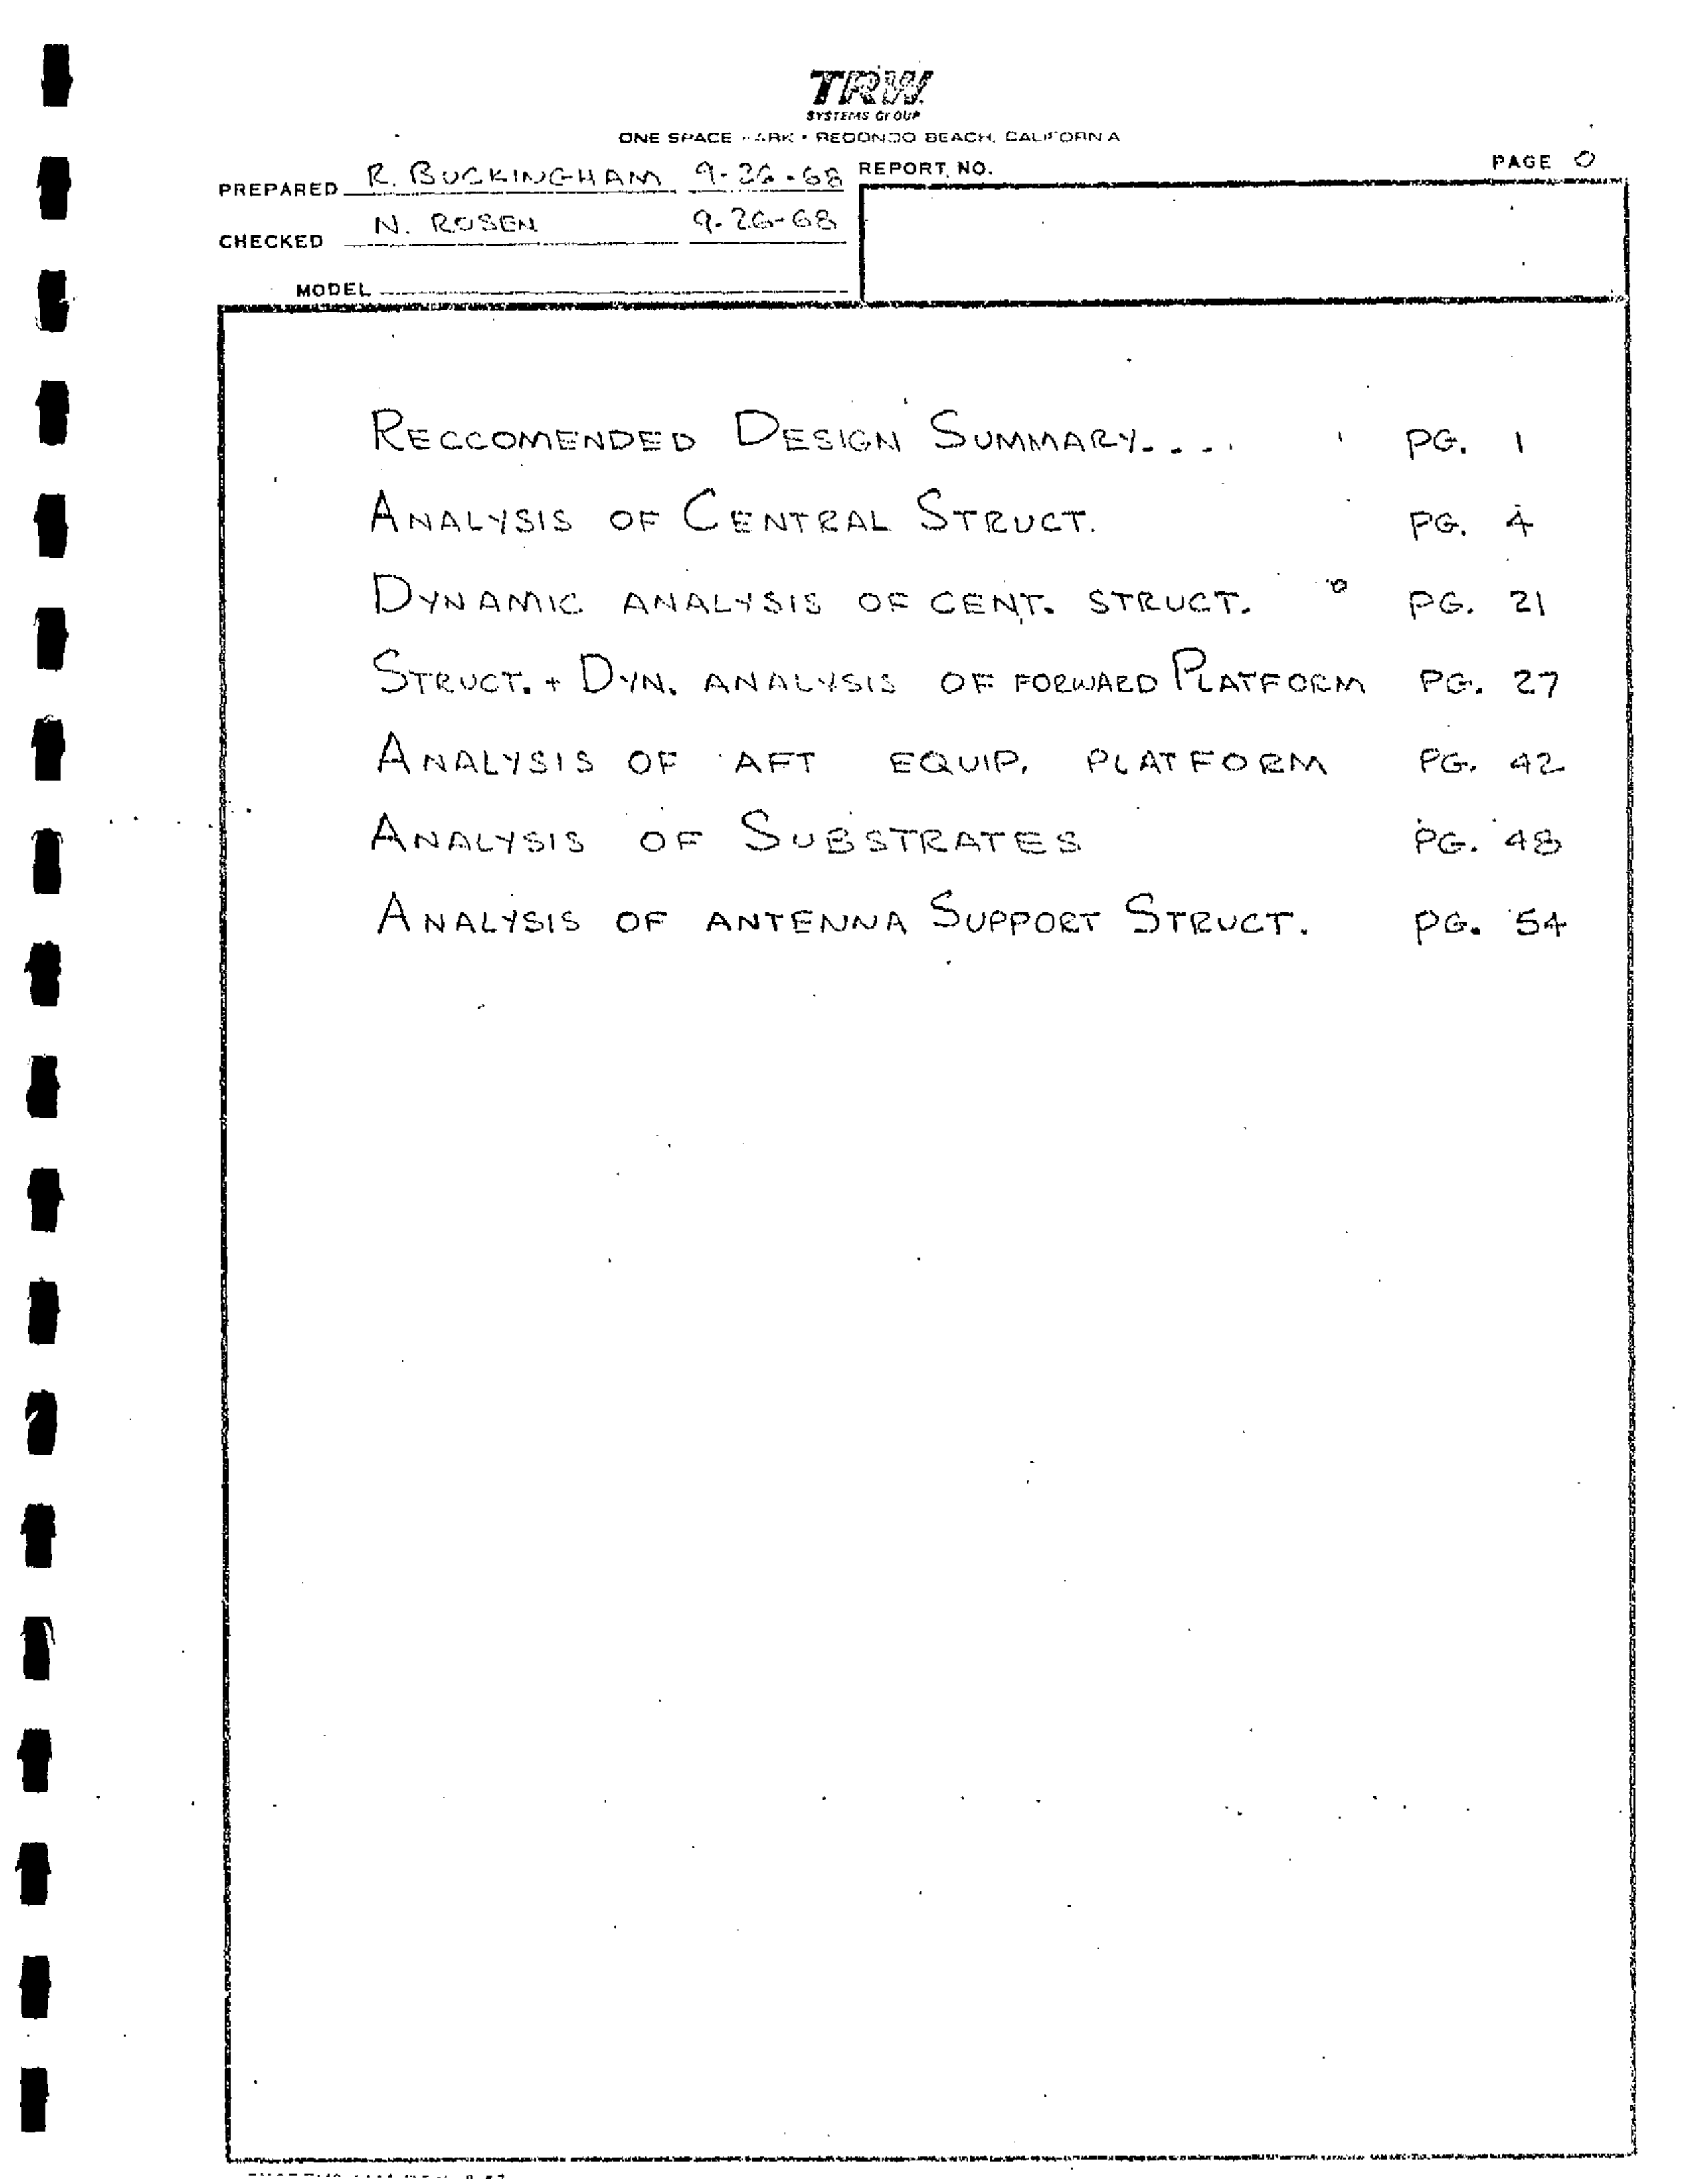 TRW
SYSTEMS GROUP
ONE SPACE PARK • REDONDO BEACH, CALIFORNIA
PREPARED R. BUCKINGHAM 9-26-68 REPORT NO. PAGE 0
CHECKED N. ROSEN 9-26-68
MODEL
RECCOMENDED DESIGN SUMMARY.... PG. 1
ANALYSIS OF CENTRAL STRUCT. PG. 4
DYNAMIC ANALYSIS OF CENT. STRUCT. PG. 21
STRUCT. + DYN. ANALYSIS OF FORWARD PLATFORM PG. 27
ANALYSIS OF AFT EQUIP. PLATFORM PG. 42
ANALYSIS OF SUBSTRATES PG. 48
ANALYSIS OF ANTENNA SUPPORT STRUCT. PG. 54